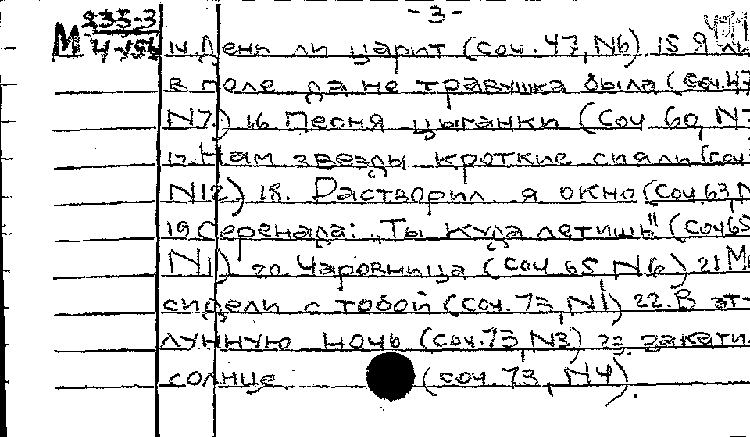 -3-
М 235-3
4-154
14. День ли царит (соч. 47, N6) 15 Я ли
в поле да не травушка была (соч. 47
N7.) 16 Песня цыганки (соч 60, N7
17. Нам звезды кроткие сияли (соч
N12) 18. Растворил я окно (соч 63, N
19 Серенада: "Ты куда летишь" (соч 65
N1) 20. Чаровница (соч 65 N6) 21 М
сидели с тобой (соч. 73, N1) 22. В эт-
лунную ночь (соч. 73, N3) 23. закати
солнце (соч. 73, N4).